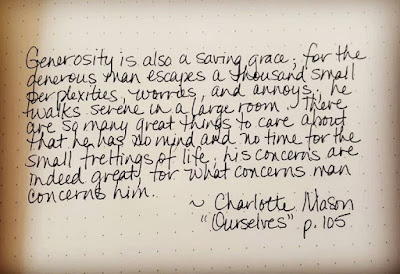 Generosity is also a saving grace; for the
generous man escapes a thousand small
perplexities, worries, and annoys; he
walks serene in a large room. There
are so many great things to care about
that he has no mind and no time for the
small frettings of life; his concerns are
indeed great, for what concerns man
concerns him.
~ Charlotte Mason
"Ourselves" p. 105